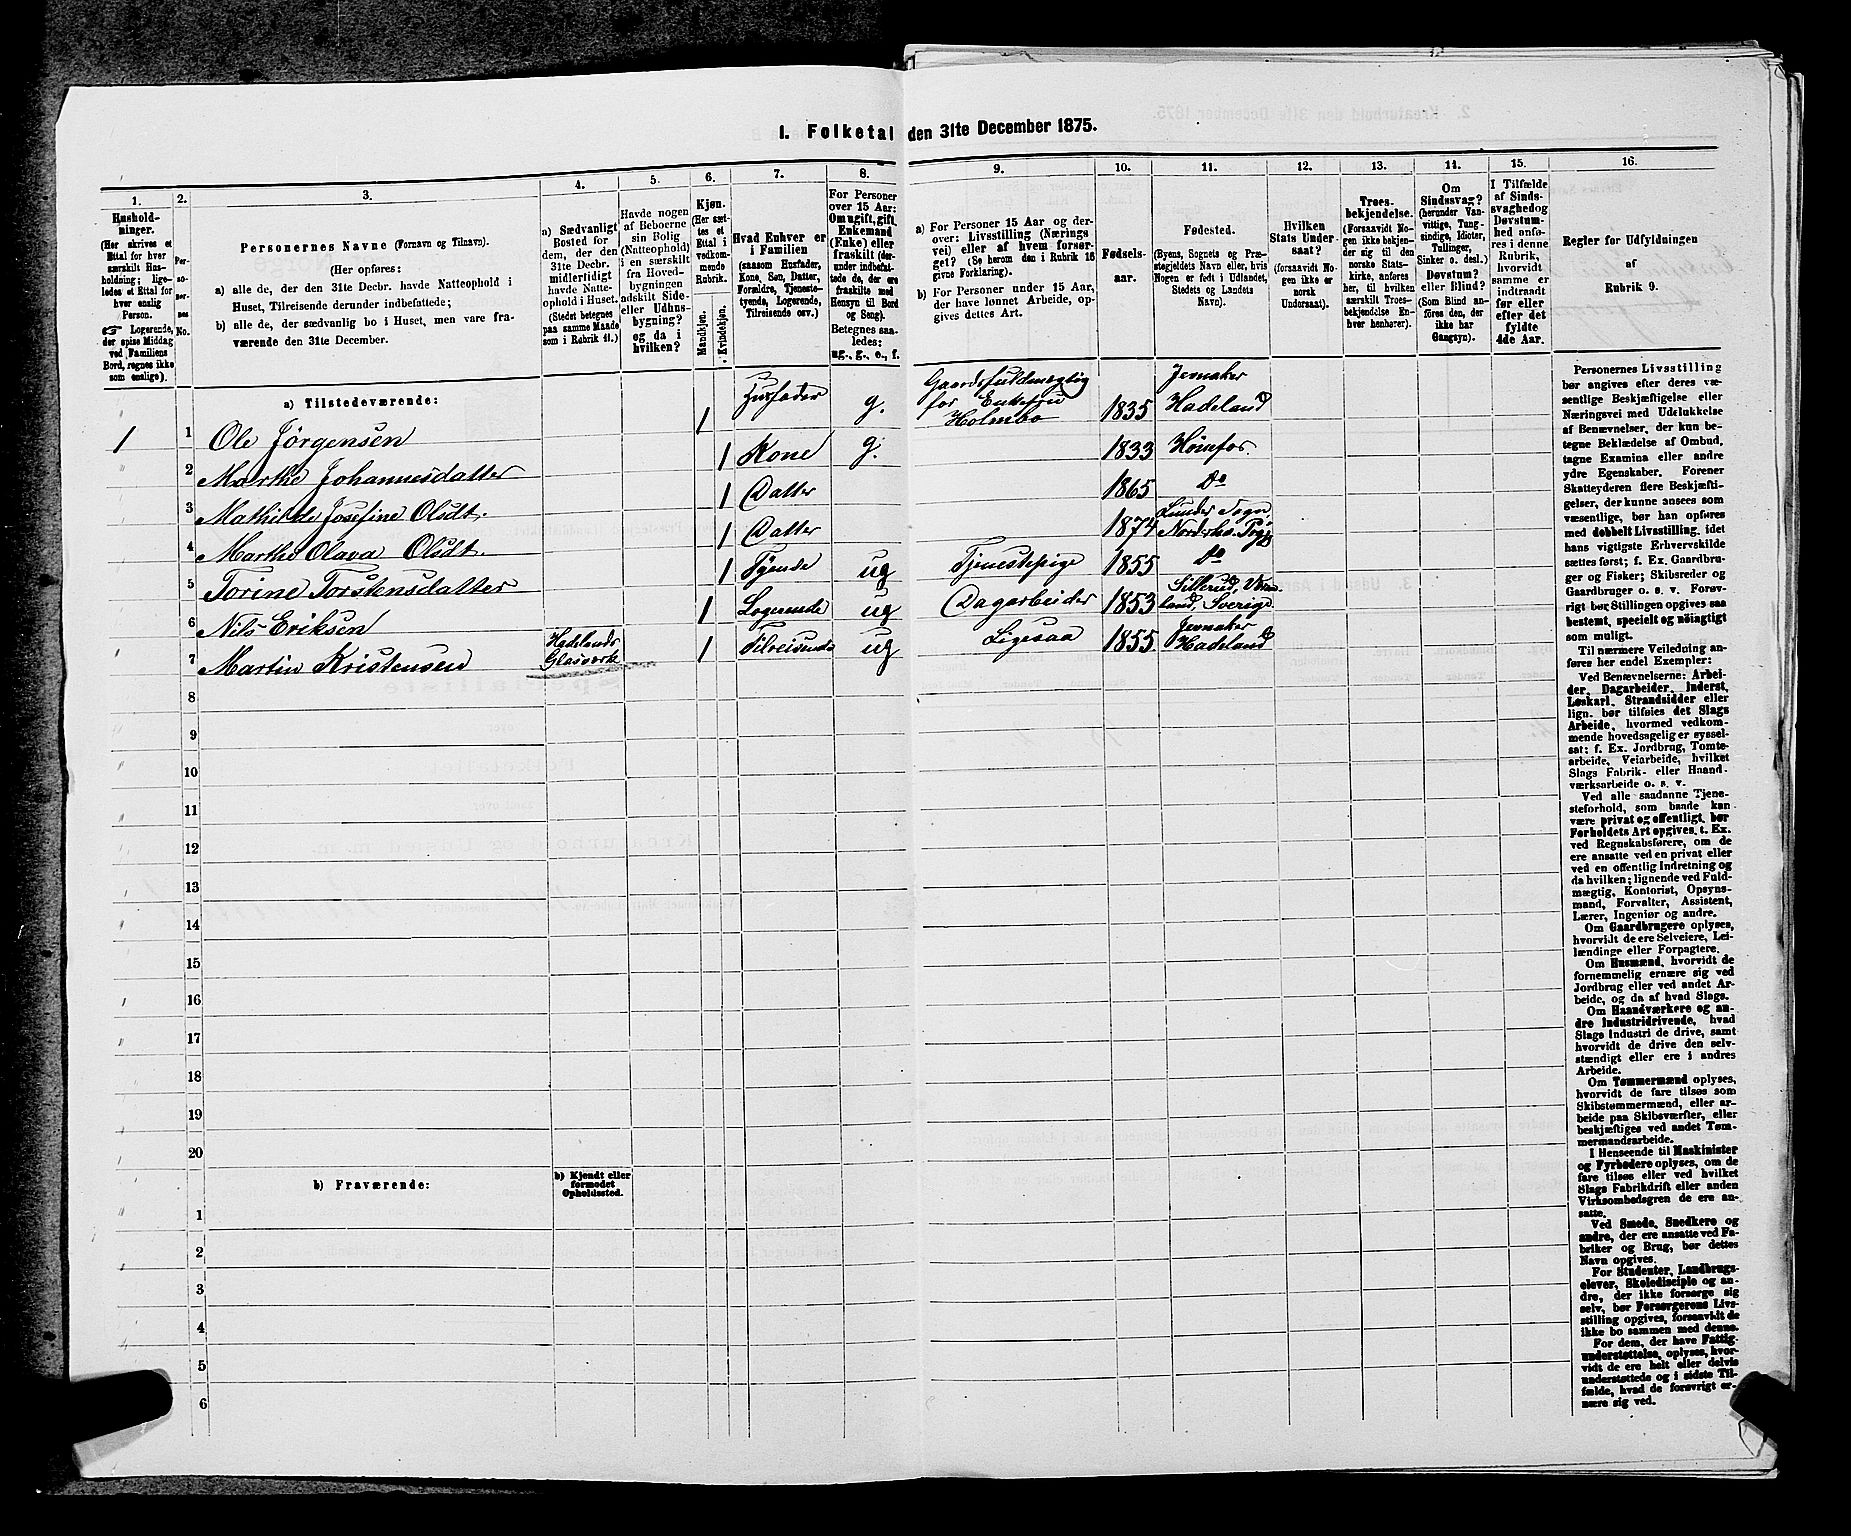 I. Folketal den 31te December 1875.
1.
Hushold-
ninger.
(Her skrives et
Ettal for hver
særskilt Hus-
holdning; lige-
ledes et Ettal for
hver enslig
Person.
☞ Logerende,
der spise Middag
ved Familiens
Bord, regnes ikke
som enslige).
2.
Per-
so-
ner-
nes
No.
3.
Personernes Navne (Fornavn og Tilnavn).
(Her opføres:
a) alle de, der den 31te Decbr. havde Natteophold i
Huset, Tilreisende derunder indbefattede;
b) alle de, der sædvanlig bo i Huset, men vare fra-
værende den 31te December.
4.
a) Sædvanligt
Bosted for
dem, der den
31te Decbr.
midlertidigt
havde Natte-
ophold i Huset.
(Stedet betegnes
paa samme Maade
som i Rubrik 11.)
5.
Havde nogen
af Beboerne
sin Bolig
(Natteophold)
i en særskilt
fra Hoved-
bygningen
adskilt Side-
eller Udhus-
bygning?
og da i
hvilken?
6.
Kjøn.
(Her sæt-
tes et
Ettal i
vedkom-
mende
Rubrik.
Mandkjøn.
Kvindekjøn.
7.
Hvad Enhver er
i Familien
(saasom Husfader,
Kone, Søn, Datter,
Forældre, Tjeneste-
tyende, Logerende,
Tilreisende osv.)
8.
For Personer
over 15 Aar:
Om ugift, gift,
Enkemand
(Enke) eller
fraskilt (der-
under indbefat-
tede de, der ere
fraskilte med
Hensyn til Bord
og Seng).
Betegnes saa-
ledes:
ug., g., e., f.
9.
a) For Personer 15 Aar og der-
over: Livsstilling (Nærings
vei) eller af hvem forsør-
get? (Se herom den i Rubrik 16
givne Forklaring).
b) For Personer under 15 Aar,
der have lønnet Arbeide, op-
gives dettes Art.
10.
Fødsels-
aar.
11.
Fødested.
(Byens, Sognets og Præ-
stegjeldets Navn eller, hvis
Nogen er født i Udlandet,
Stedets og Landets
Navn).
12.
Hvilken
Stats Under-
saat?
(forsaavidt No-
gen ikke er
norsk
Undersaat).
13.
Troes-
bekjendelse.
(Forsaavidt No-
gen ikke bekjen-
der sig til den
norske Stats-
kirke, anføres
her, til hvilken
særskilt Troes-
bekjendelse En-
hver henhører).
14.
Om
Sindssvag?
(herunder Van-
vittige, Tung-
sindige, Idioter,
Tullinger,
Sinker o. desl.)
Døvstum?
eller Blind?
(Som Blind an-
føres den, der
ikke har
Gangsyn).
15.
I Tilfælde
af Sinds-
svaghed og
Døvstum-
hed anfø-
res i denne
Rubrik,
hvorvidt
samme er
indtraadt
før eller
efter det
fyldte
4de Aar.
16.
Regler for Udfyldningen
af
Rubrik 9.
a) Tilstedeværende:
1 1 Ole Jørgensen 1 Husfader g. Gaardsfuldmægtig for Enkefru Holmbo 1835 Jevnaker Hadeland
2 Marthe Johannesdatter 1 Kone g. 1833 Hønefos.
3 Mathilde Josefine Olsdt. 1 Datter 1865 Do
4 Marthe Olava Olsdt. 1 Datter 1874 Lunder Sogn, Nordreho. Prgj.
5 Torine Torstensdatter 1 Tyende ug Tjenestepige 1855 Do
6 Nils Eriksen 1 Logerende ug Dagarbeider 1853 Sillerud, Verm-land, Sverige
7 Martin Kristensen Hadelands Glasverk 1 Tilreisende ug Ligesaa 1855 Jevnaker Hadeland
8
9
10
11
12
13
14
15
16
17
18
19
20
b) Fraværende:
b) Kjendt eller
formodet
Opholdssted.
1
2
3
4
5
6
Personernes Livsstilling
bør angives efter deres væ-
sentlige Beskjæftigelse eller
Næringsvei med Udelukkelse
af Benævnelser, der kun be-
tegne Beklædelse af Ombud,
tagne Examina eller andre
ydre Egenskaber. Forener
Skatteyderen flere Beskjæfti-
gelser, der kunne ansees som
væsentlige, bør han opføres
med dobbelt Livsstilling, idet
hans vigtigste Erhvervskilde
sættes først; f. Ex. Gaardbru-
ger og Fisker; Skibsreder og
Gaardbruger o. s. v. Forøv-
rigt bør Stillingen opgives saa
bestemt, specielt og nøiagtigt
som muligt.
Til nærmere Veiledning an-
føres her endel Exempler:
Ved Benævnelserne: Arbei-
der, Dagarbeider, Inderst,
Løskarl, Strandsidder eller
lign. bør tilføies det Slags
Arbeide, hvormed vedkom-
mende hovedsagelig er syssel-
sat; f. Ex. Jordbrug, Tomte-
arbeide, Veiarbeide, hvilket
Slags Fabrik- eller Haand-
værksarbeide o. s. v.
Ved alle saadanne Tjene-
steforhold, som baade kan
være privat og offentligt, bør
Forholdets Art opgives, t. Ex.
ved Regnskabsførere, om de
ere ansatte ved en privat eller
ved en offentlig Indretning og
da hvilken; lignende ved Fuld-
mægtig, Kontorist, Opsyns-
mand, Forvalter, Assistent,
Lærer, Ingeniør og andre.
Om Gaardbrugere oplyses,
hvorvidt de ere Selveiere, Lei-
lændinge eller Forpagtere.
Om Husmænd, hvorvidt de
fornemmelig ernære sig ved
Jordbrug eller ved andet Ar-
beide, og da af hvad Slags.
Om Haandværkere og an-
dre Industridrivende, hvad
Slags Industri de drive, samt
hvorvidt de drive den selv-
stændigt eller ere i andres
Arbeide.
Om Tømmermænd oplyses,
hvorvidt de fare tilsøs som
Skibstømmermænd, eller ar-
beide paa Skibsværfter, eller
beskjæftiges ved andet Tøm-
mermandsarbeide.
I Henseende til Maskinister
og Fyrbødere oplyses, om de
fare tilsøs eller ved hvilket
Slags Fabrikdrift eller anden
Virksomhedsgren de ere an-
satte.
Ved Smede, Snedkere og
andre, der ere ansatte ved Fa-
briker og Brug, bør dettes
Navn opgives.
For Studenter, Landbrugs-
elever, Skoledisciple og an-
dre, der ikke forsørge sig
selv, bør Forsørgerens Livs-
stilling opgives, forsaavidt de
ikke bo sammen med denne.
For dem, der have Fattig-
understøttelse, oplyses, hvor-
vidt de ere helt eller delvis
understøttede og i sidste Til-
fælde, hvad de forøvrigt er-
nære sig ved.